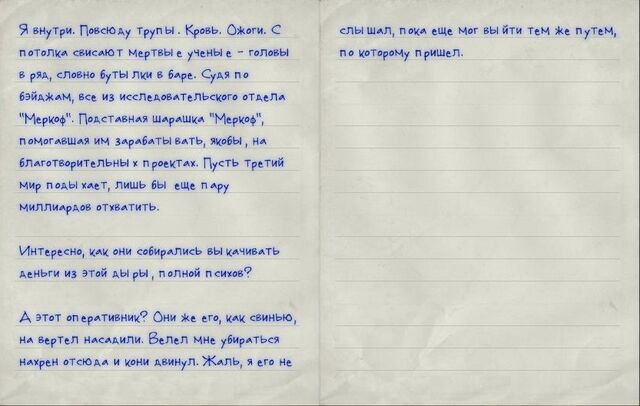 Я внутри. Повсюду трупы. Кровь. Ожоги. С
потолка свисают мертвые ученые - головы
в ряд, словно бутылки в баре. Судя по
бэйджам, все из исследовательского отдела
"Меркоф". Подставная шарашка "Меркоф",
помогавшая им зарабатывать, якобы, на
благотворительных проектах. Пусть третий
мир подыхает, лишь бы еще пару
миллиардов отхватить.
Интересно, как они собирались выкачивать
деньги из этой дыры, полной психов?
А этот оперативник? Они же его, как свинью,
на вертел насадили. Велел мне убираться
нахрен отсюда и кони двинул. Жаль, я его не
слышал, пока еще мог выйти тем же путем,
по которому пришел.